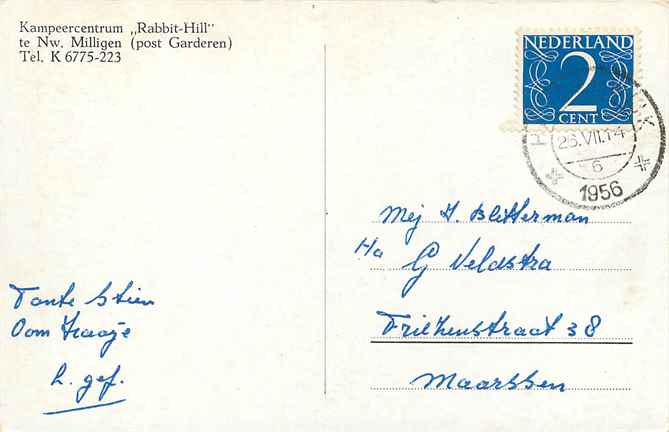 Kampeercentrum „Rabbit-Hill"
te Nw. Milligen (post Garderen)
Tel. K 6775-223
NEDERLAND
2
CENT
26.VII.14
6
1956
Mej H. Blitterman
Ha G Veldstra
38
Maarssen
Tante Stien
Oom
h. gef.